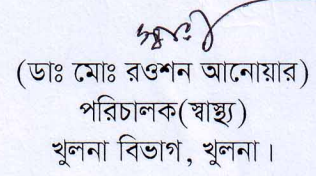 স্বাঃ
(ডাঃ মোঃ রওশন আনোয়ার)
পরিচালক(স্বাস্থ্য)
খুলনা বিভাগ, খুলনা।